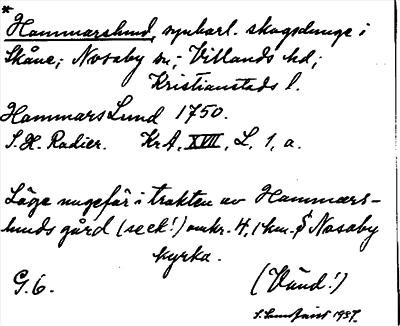 *
Hammarslund, synbarl. skogsdunge i
Skåne; Nosaby sn; Villands hd;
Kristianstads l.
Hammars Lund 1750.
S. H. Radier. KrA, XVII, L, 1, a.
Läge ungefär i trakten av Hammars-
lunds gård (se ek!) omkr. 4,1 km. S Nosaby
kyrka.
G. 6. (Vänd!)
1937.